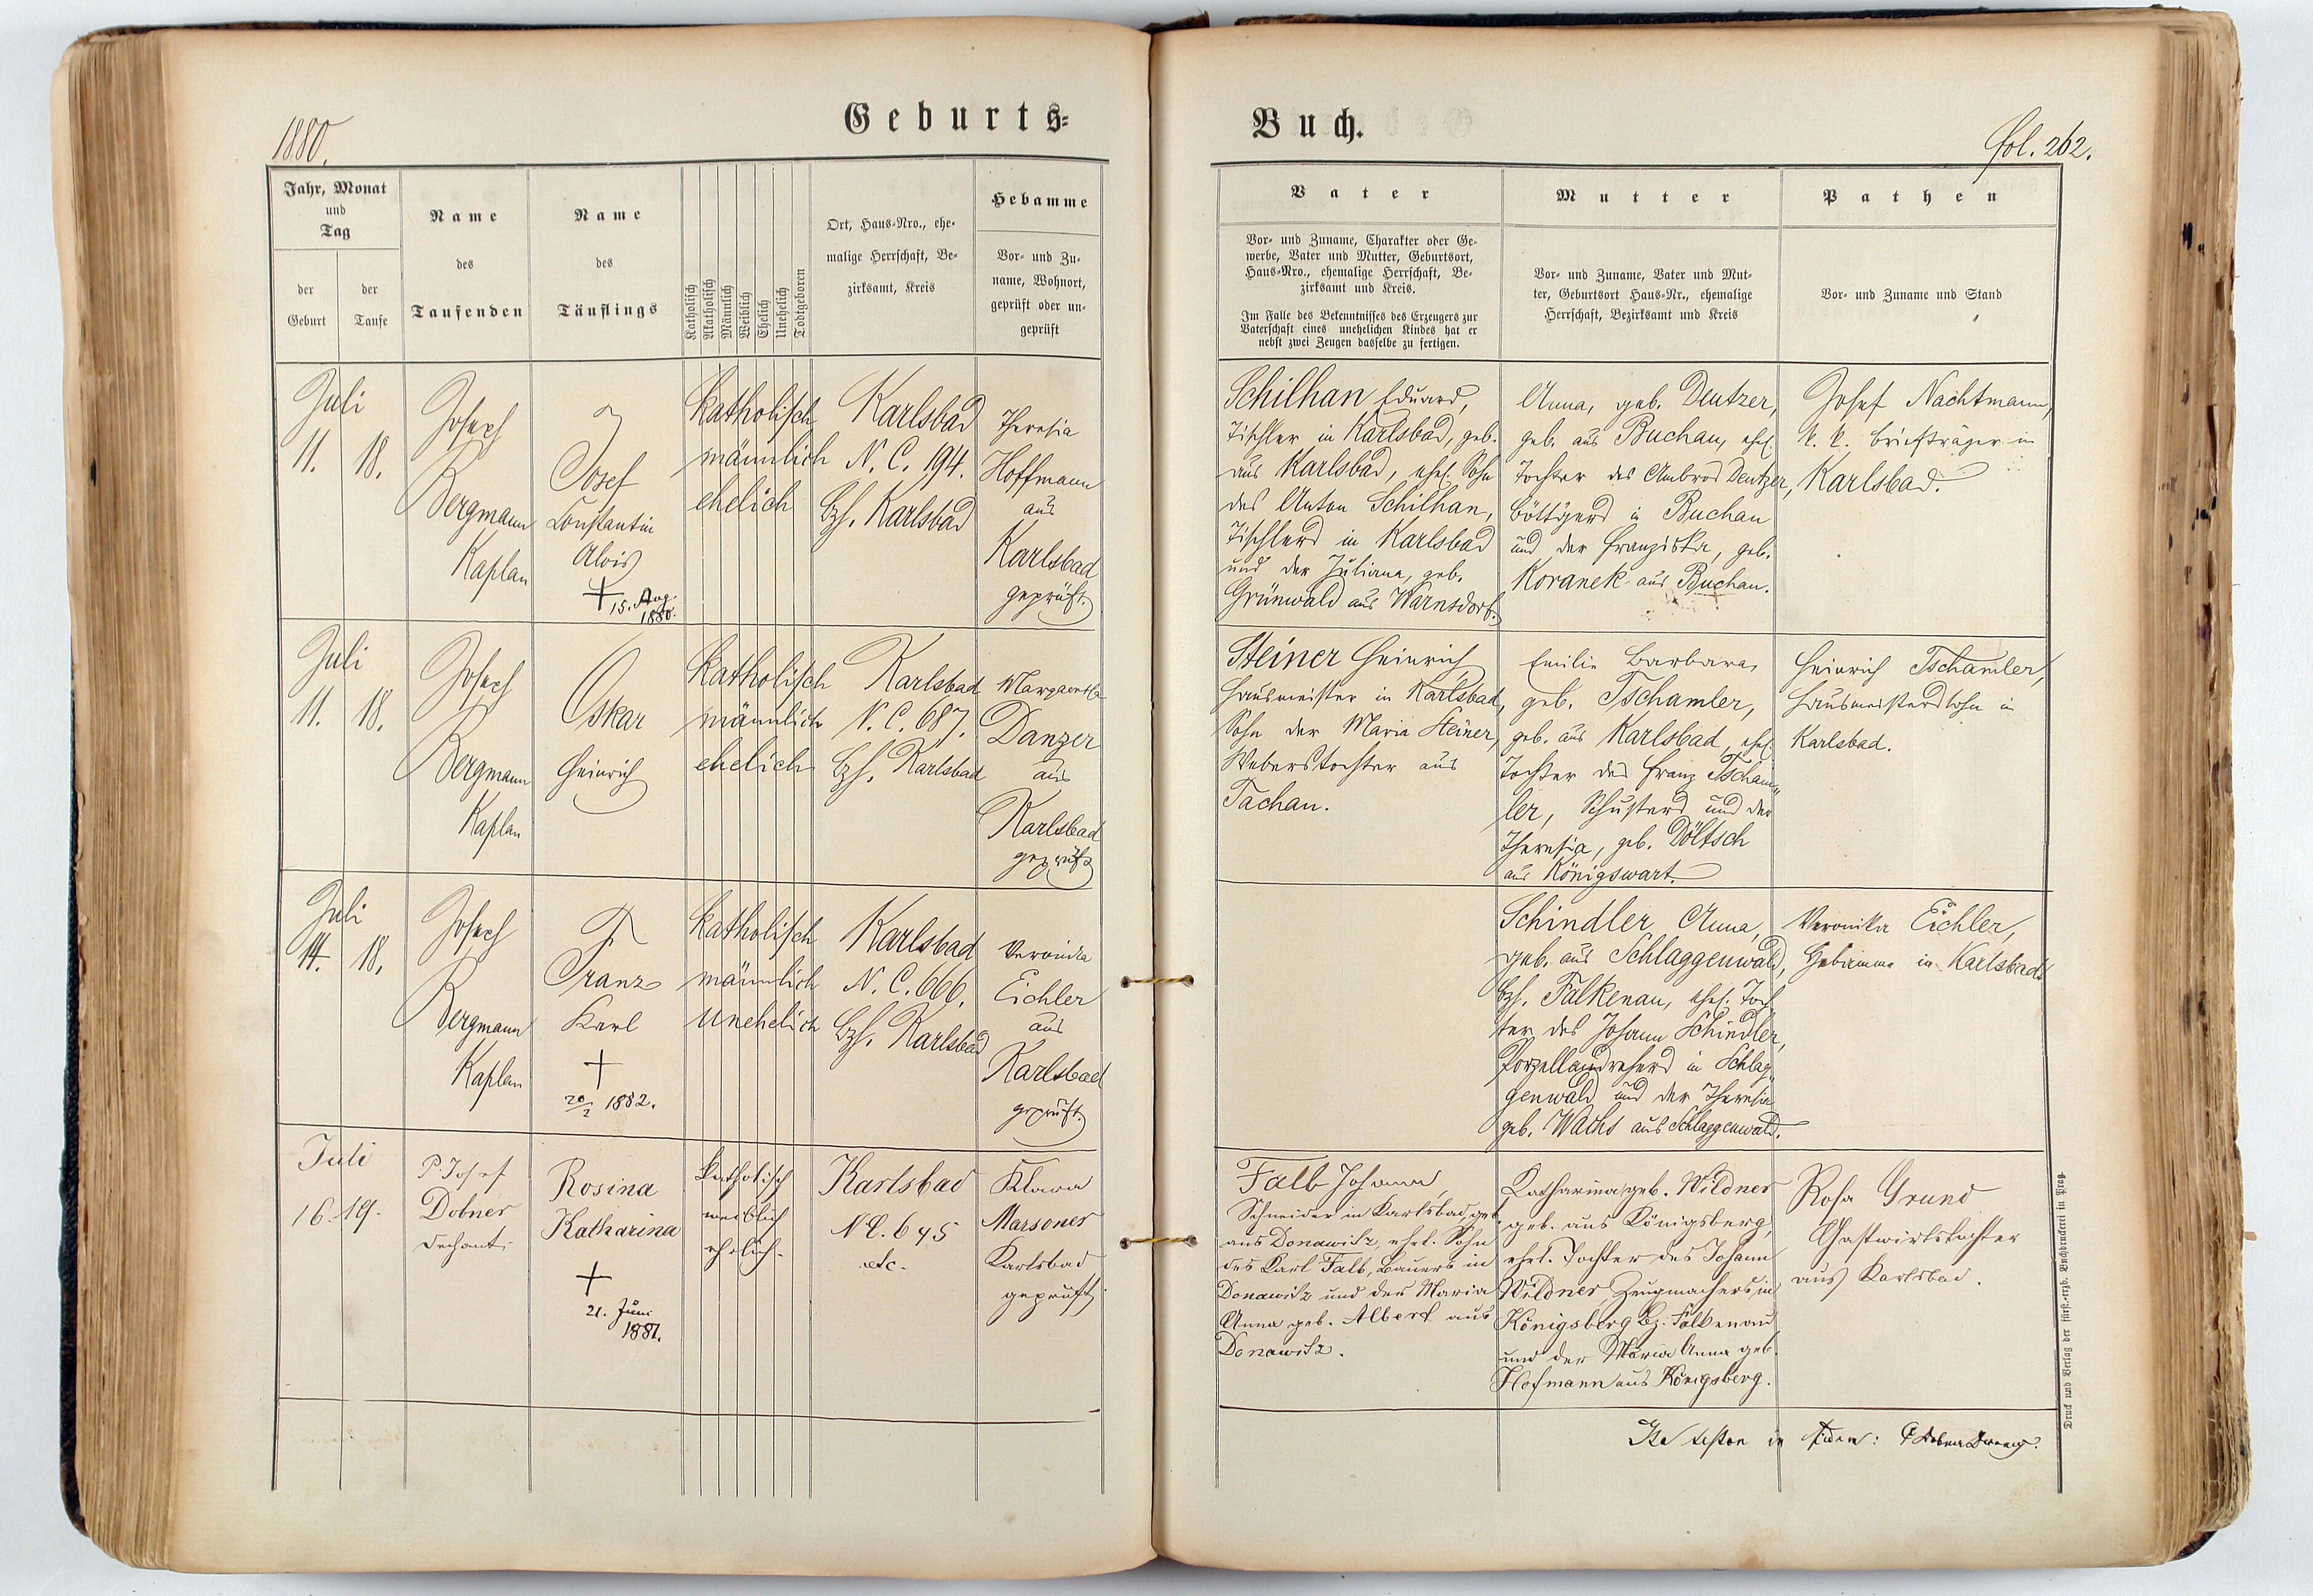 1880.
Geburts-
Jahr, Monat
und
Tag
der
Geburt
der
Taufe
Name
des
Taufenden
Name
des
Täuflings
Katholisch
Akatholisch
Männlich
Weiblich
Ehelich
Unehelich
Todtgeboren
Ort, Haus-Nro., ehe-
malige Herrschaft, Be-
zirksamt, Kreis
Hebamme
Vor- und Zu-
name, Wohnort,
geprüft oder un-
geprüft
Juli
11. 18.
Josef
Bergmann
Kaplan
Josef
Constantin
Alois
+ 15. Aug.
1880.
katholisch
männlich
ehelich
Karlsbad
N. C. 194.
Bzh. Karlsbad
Theresia
Hoffmann
aus
Karlsbad
geprüft.
Juli
11. 18.
Josef
Bergmann
Kaplan
Oskar
Heinrich
katholisch
männlich
ehelich
Karlsbad
N. C. 687.
Bzh. Karlsbad
Margaretha
Danzer
aus
Karlsbad
geprüft
Juli
14. 18.
Josef
Bergmann
Kaplan
Franz
Karl
+
20/2 1882.
katholisch
männlich
unehelich
Karlsbad
N. C. 666.
Bzh. Karlsbad
Veronika
Eichler
aus
Karlsbad
geprüft.
Juli
16. 19.
P. Josef
Dobner
Dechant.
Rosina
Katharina
+
21. Juni
1881.
katholisch
weiblich
ehelich.
Karlsbad
N C. 695
etc.
Klara
Marsoner
Karlsbad
geprüft.
Buch.
fol. 262.
Vater
Vor- und Zuname, Charakter oder Ge-
werbe, Vater und Mutter, Geburtsort,
Haus-Nro., ehemalige Herrschaft, Be-
zirksamt und Kreis.
Im Falle des Bekenntnisses des Erzeugers zur
Vaterschaft eines unehelichen Kindes hat er
nebst zwei Zeugen dasselbe zu fertigen.
Mutter
Vor- und Zuname, Vater und Mut-
ter, Geburtsort Haus-Nr., ehemalige
Herrschaft, Bezirksamt und Kreis
Pathen
Vor- und Zuname und Stand
Schilhan Eduard,
Tischler in Karlsbad, geb.
aus Karlsbad, ehel. Sohn
des Anton Schilhan,
Tischlers in Karlsbad
und der Juliana, geb.
Grünwald aus Warnsdorf.
Anna, geb. Deutzer,
geb. aus Buchau, ehel.
Tochter des Ambros Deutzer,
Böttgers in Buchau
und der Franziska, geb.
Koranek aus Buchau.
Josef Nachtmann,
k. k. Briefträger in
Karlsbad.
Steiner Heinrich
Hausmeister in Karlsbad,
Sohn der Maria Steiner,
Weberstochter aus
Tachau.
Emilie Barbara,
geb. Tschamler,
geb. aus Karlsbad, ehel.
Tochter des Franz Tscham-
ler, Schusters und der
Theresia, geb. Döltsch
aus Königswart.
Heinrich Tschamler,
Hausmeisterssohn in
Karlsbad.
Schindler Anna,
geb. aus Schlaggenwald,
Bzh. Falkenau, ehel. Toch-
ter des Johann Schindler,
Porzellandrehers in Schlag-
genwald und der Theresia
geb. Wachs aus Schlaggenwald.
Veronika Eichler,
Hebamme in Karlsbad.
Falb Johann
Schneider in Karlsbad, geb.
aus Donawitz, ehel. Sohn
des Karl Falb, Bauers in
Donawitz und der Maria
Anna geb. Albert aus
Donawitz.
Katharina geb. Wildner
geb. aus Königsberg,
ehel. Tochter des Johann
Wildner, Zeugmachers in
Königsberg Bz. Falkenau
und der Maria Anna geb.
Hofmann aus Königsberg.
Rosa Grund
Gastwirtstochter
aus Karlsbad.
Ita testor in fidem: P. Dobner
Druck und Verlag der fürst.-erzb. Buchdruckerei in Prag.